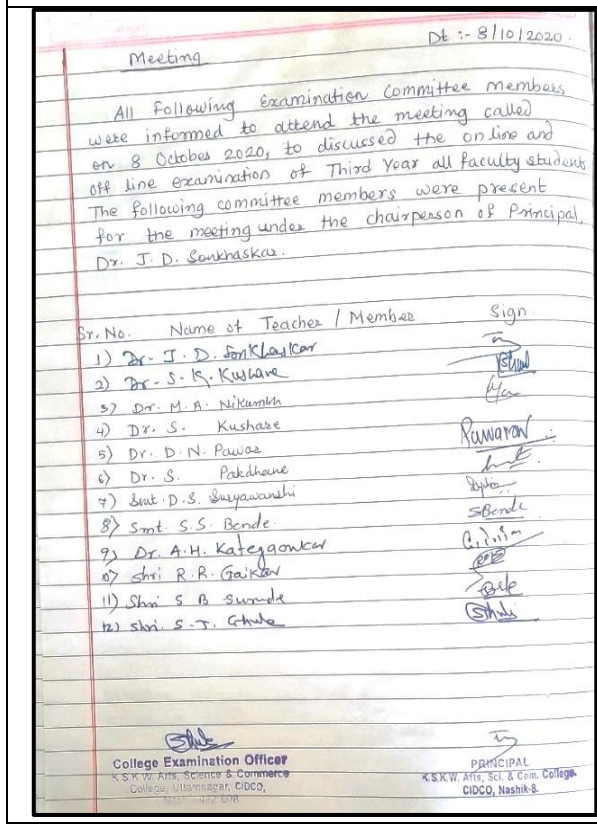 Dt :- 8/10/2020.
Meeting
All Following Examination Committee members
were informed to attend the meeting called
on 8 October 2020, to discussed the on line and
off line examination of Third Year all faculty students
The following committee members were present
for the meeting under the chairperson of Principal,
Dr. J. D. Sonkhaskar.
Sr. No. Name of Teacher / Member Sign
1) Dr. J. D. Sonkhaskar
2) Dr. S. K. Kushare
3) Dr. M. A. Nikumbh
4) Dr. S. Kushare
5) Dr. D. N. Pawar Pawar
6) Dr. S. Pakdhane
7) Smt. D. S. Suryawanshi
8) Smt. S. S. Bende. SBende
9) Dr. A. H. Kategaonkar
10) Shri R. R. Gaikar
11) Shri S B Surude
12) Shri. S. T. Ghule
College Examination Officer
K.S.K.W. Arts, Science & Commerce
College, Uttamnagar, CIDCO,
PRINCIPAL
K.S.K.W. Arts, Sci. & Com. College.
CIDCO, Nashik-8.